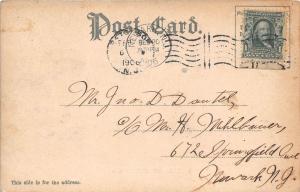 Post Card.
1906
N.J.
Mr. Jno. D. Dantel
c/o Mr. H. Mehlbauer
672 Springfield Ave
Newark N.J.
This side is for the address.